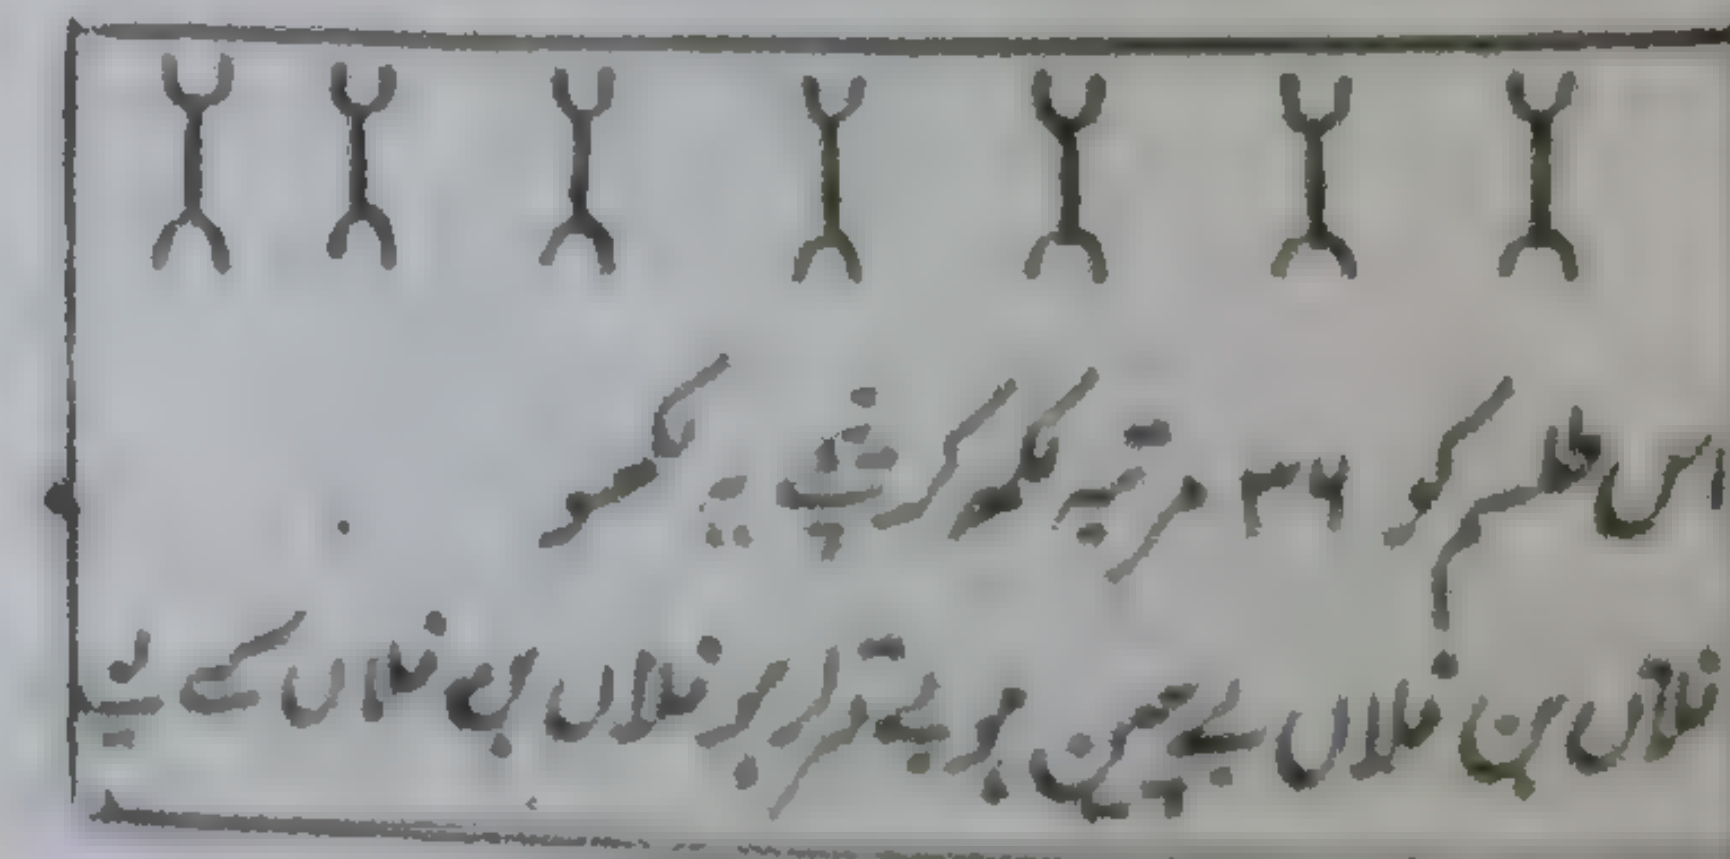 اس طلسم کو ۳۴ مرتبہ لکھ کر نیچے یہ لکھو
فلاں بن فلاں بے چین ہو بے قرار ہو فلاں بن فلاں کے لئے